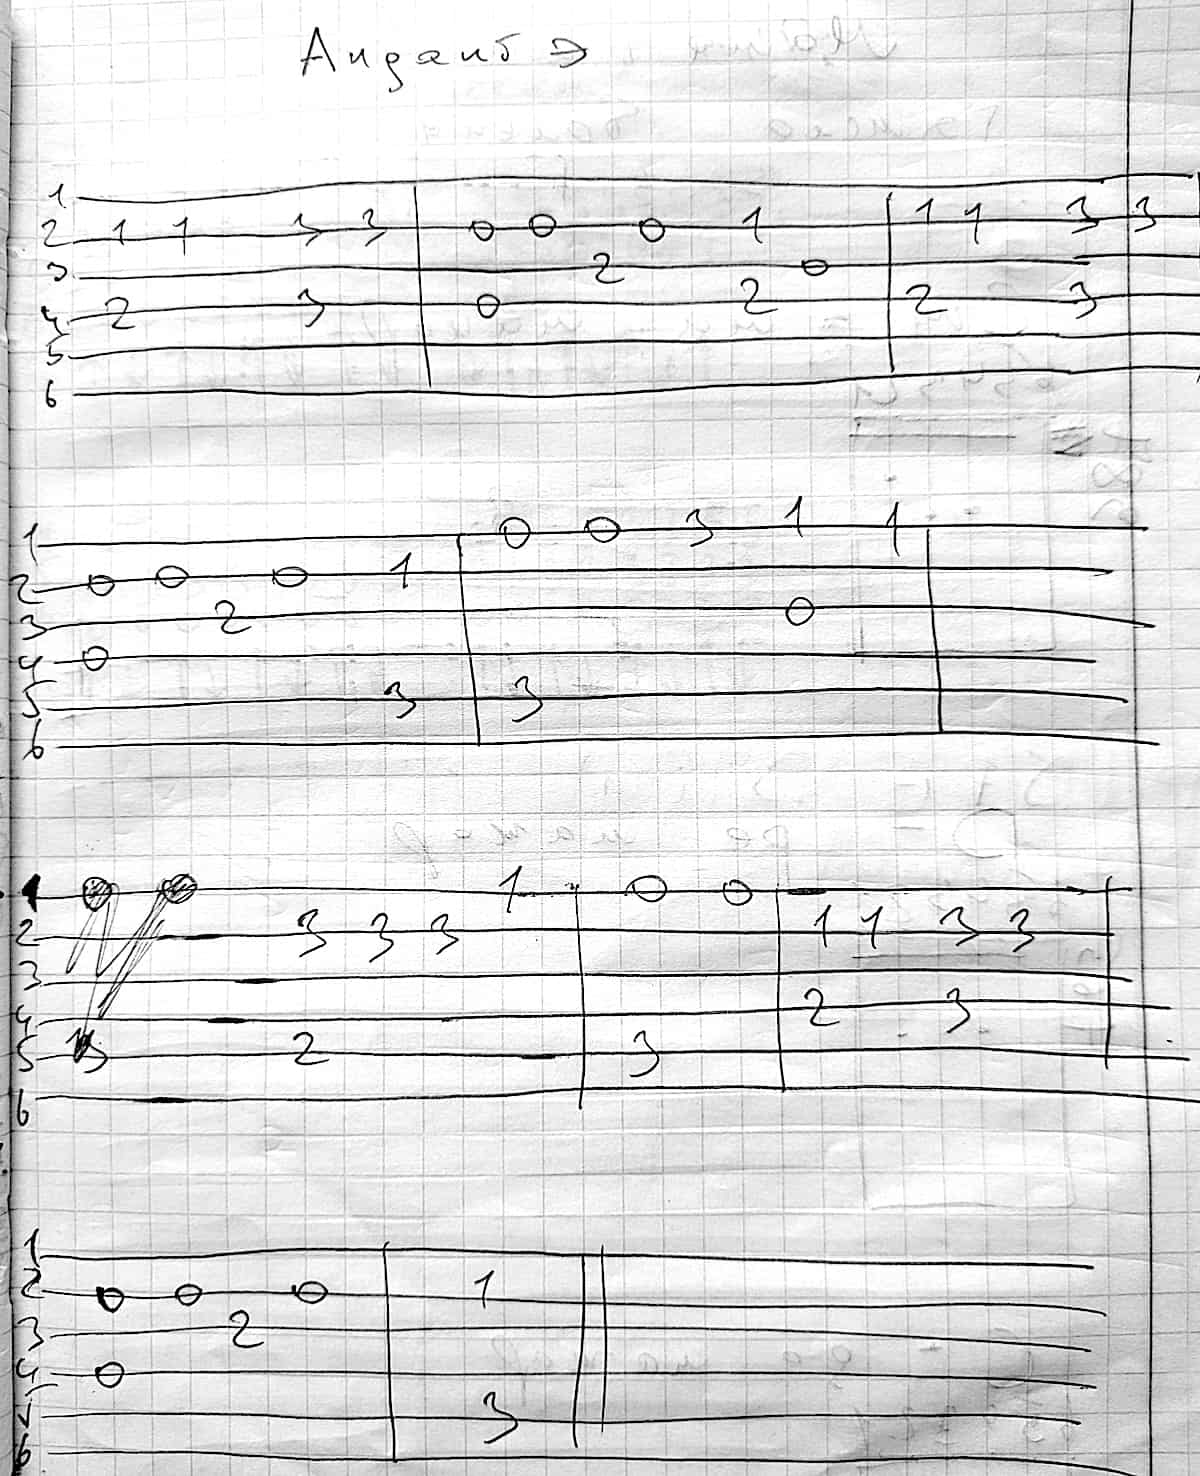 Андантэ
1
2 1 1 3 3 0 0 0 1 1 1 3 3
3 2 0
4 2 3 0 2 2 3
5
6
1 0 0 3 1 1
2 0 0 0 1
3 2 0
4 0
5 3 3
6
1 1 0 0
2 3 3 3 1 1 3 3
3
4 2 3
5 3 2 3
6
1
2 0 0 0 1
3 2
4 0
5 3
6